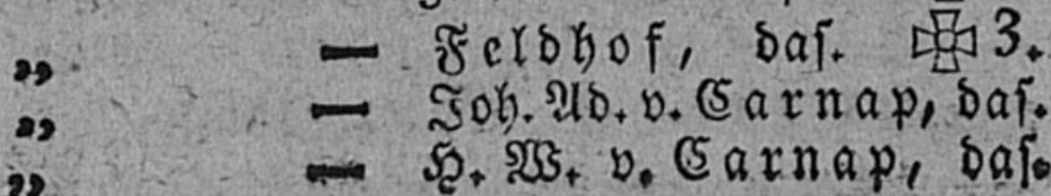 „ — Feldhof, daſ. ✠ 3.
„ — Joh. Ad. v. Carnap, daſ.
„ — H. W. v. Carnap, daſ.